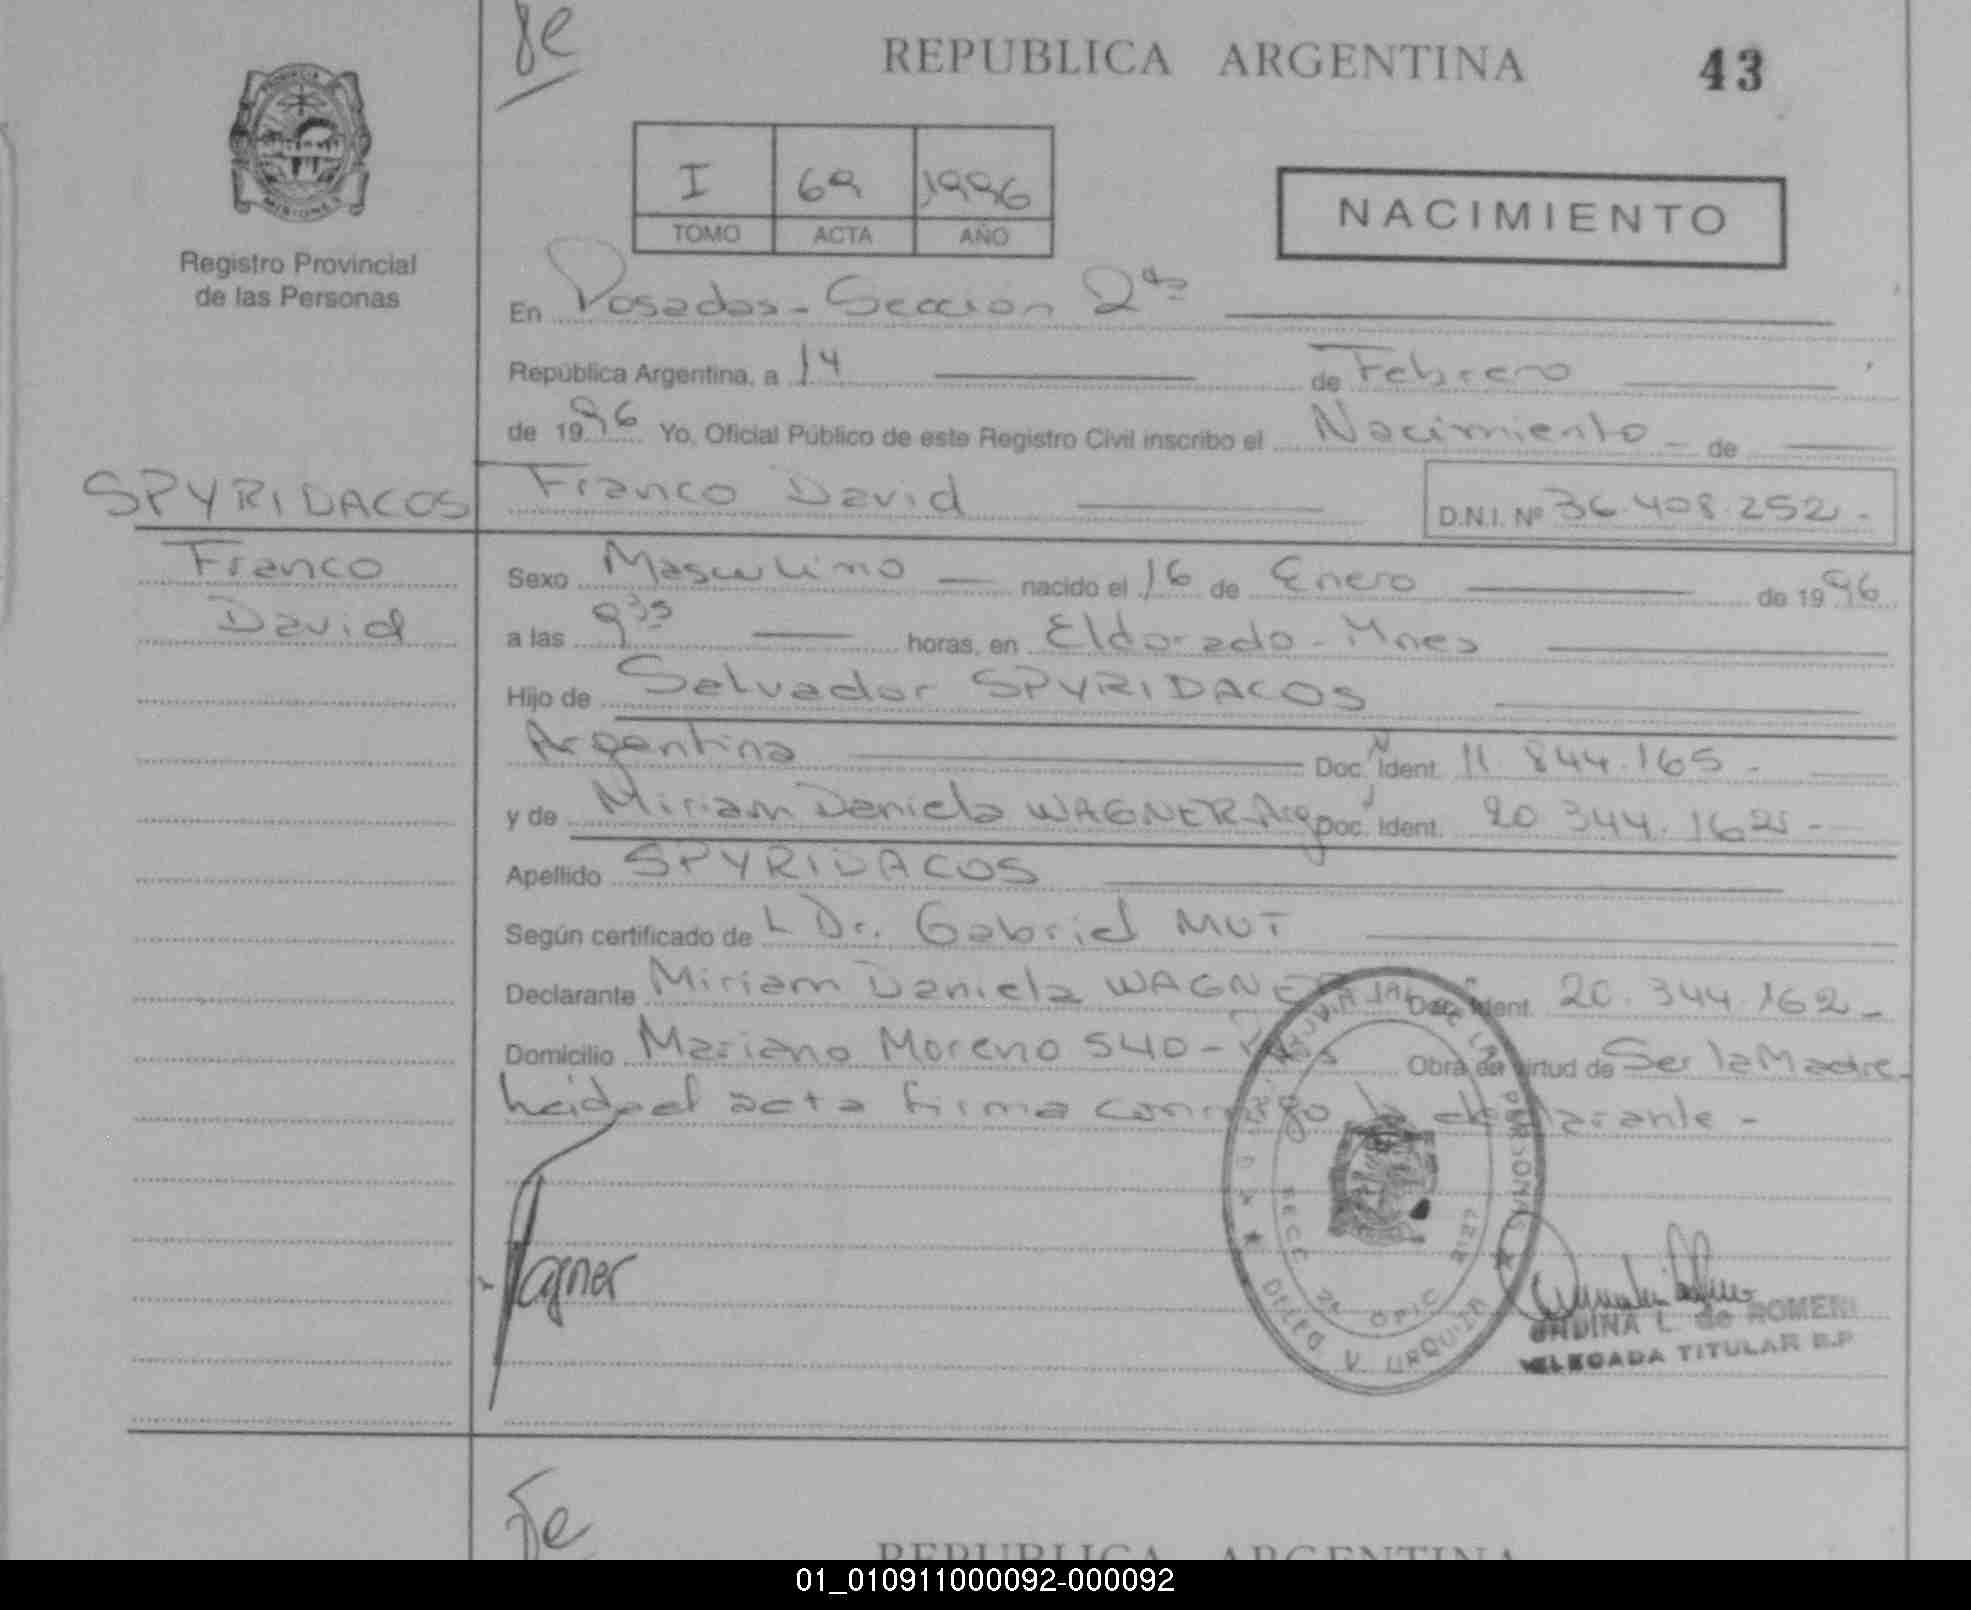 REPUBLICA ARGENTINA
43
I 69 1996
TOMO ACTA AÑO
NACIMIENTO
Registro Provincial
de las Personas
En Posadas - Sección 2da
República Argentina, a 14 de Febrero
de 1996 Yo, Oficial Público de este Registro Civil inscribo el Nacimiento - de
SPYRIDACOS Franco David D.N.I. Nº 36.408.252 -
Franco
David
Sexo Masculino nacido el 16 de Enero de 1996
a las 9 35 horas, en Eldorado - Mnes
Hijo de Salvador SPYRIDACOS
Argentina Doc. Ident. 11.844.165 -
y de Miriam Daniela WAGNER Arg Doc. Ident. 20.344.162 -
Apellido SPYRIDACOS
Según certificado de L Dr. Gabriel MUT
Declarante Miriam Daniela WAGNER Doc. Ident. 20.344.162 -
Domicilio Mariano Moreno 540 - Obra en virtud de Ser la Madre
Leida el acta firma conmigo la declarante -
Wagner
PERSONAS
SECC 2a OFIC
DELEG V. URQUIZA
ONDINA L. de ROMERI
DELEGADA TITULAR R.P
REPUBLICA ARGENTINA
01_010911000092-000092